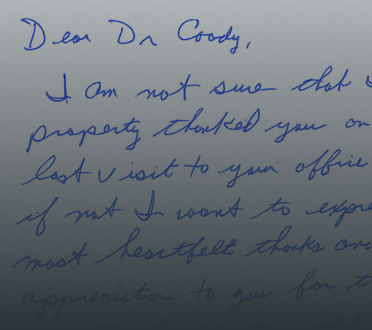 Dear Dr Coody,
I am not sure that
property thanked you on
last visit to your office
if not I want to expre
most heartfelt thanks and
appreciation to you for t